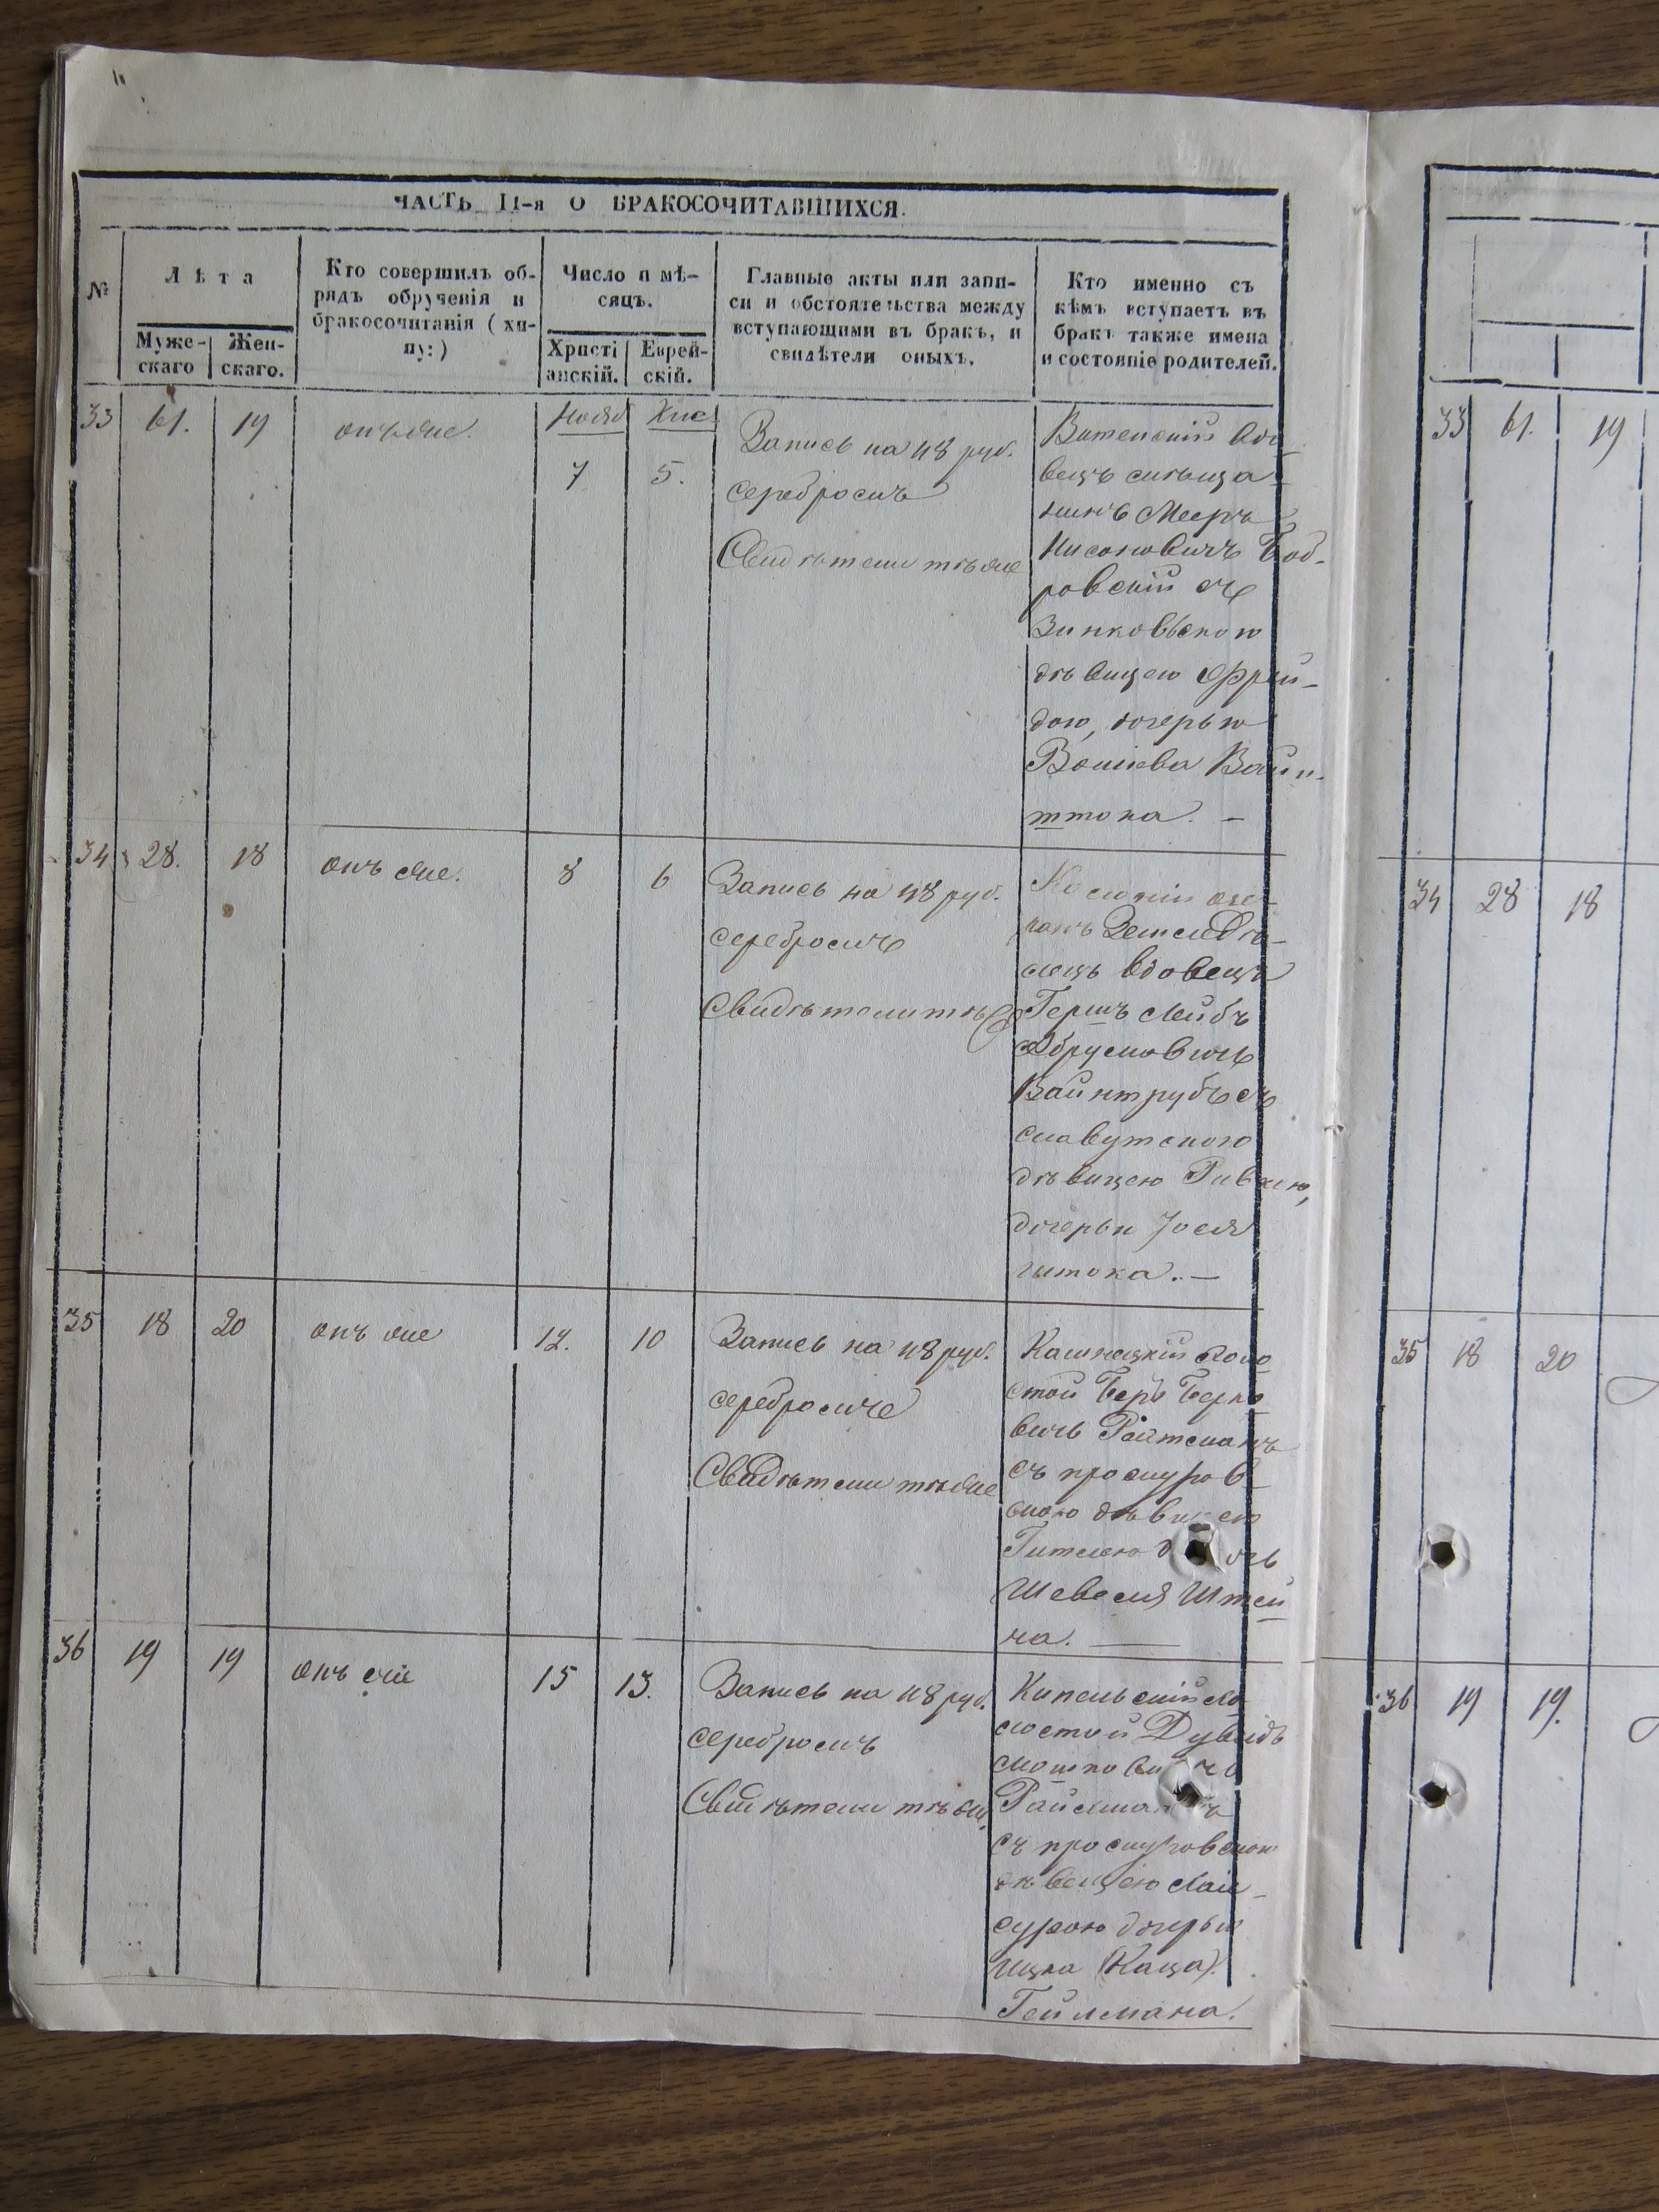 ЧАСТЬ II-я О БРАКОСОЧИТАВШИХСЯ.
№
Лѣта
Муже-
скаго
Жен-
скаго.
Кто совершилъ об-
рядъ обрученія и
бракосочитанія (хи-
пу:)
Число и мѣ-
сяцъ.
Христі
анскій.
Еврей-
скій.
Главные акты или запи-
си и обстоятельства между
вступающими въ бракъ, и
свидѣтели оныхъ.
Кто именно съ
кѣмъ вступаетъ въ
бракъ также имена
и состояніе родителей.
33
61.
19
онъ же.
Нояб
7
Кис
5.
Запись на 48 руб.
серебромъ
Свидѣтели тѣ же
вдо
вецъ мѣща
нинъ Мееръ
Нисоновичъ Боб-
ровскій съ
Зинковскою
дѣвицею Фрей-
дою, дочерью
Вольква Вайн-
штока. —
34
28.
18
онъ же.
8
6
Запись на 48 руб.
серебромъ
Свидѣтели тѣ
Земледѣ-
лецъ вдовецъ
Гершъ Лейбъ
Абрумовичъ
Вайнтрубъ съ
славутскою
дѣвицею Ривкою,
дочерью Іося
35
18
20
онъ же
12.
10
Запись на 48 руб.
серебромъ
Свидѣтели тѣ же
холо
стой Беръ Берко
вичъ Ройтманъ
съ проскуров
скою дѣвицею
Гитлею
Шевеля Штей
на.
36
19
19
онъ же
15
13.
Запись на 48 руб.
серебромъ
Свидѣтели тѣ же
хо
лостой Дувидъ
Мошковичъ
Райсманъ
съ проскуровскою
дѣвицею Хай-
сурою дочерью
Ицка (Каца)
Гейлмана.
33
61.
19
34
28
18
35
18
20
36
19
19.